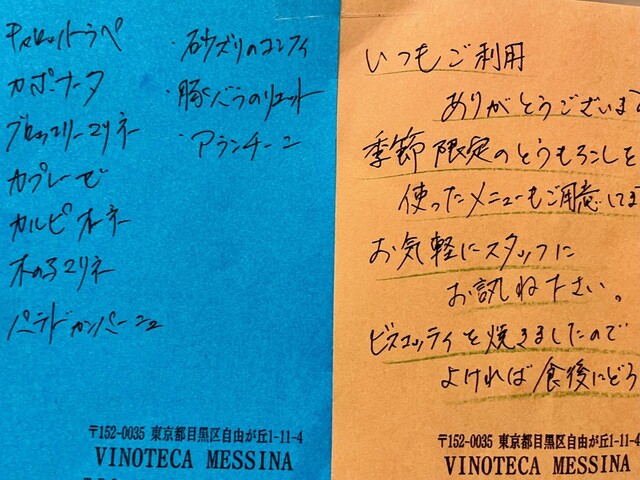 キャロットラペ
カポナータ
ブロッコリーマリネ
カプレーゼ
カルピオーネ
木の子マリネ
パテドカンパーニュ
・砂ズリのコンフィ
・豚バラのリエット
・アランチーニ
〒152-0035 東京都目黒区自由が丘1-11-4
VINOTECA MESSINA
いつもご利用
ありがとうございます
季節限定のとうもろこしを
使ったメニューもご用意してま
お気軽にスタッフに
お訊ね下さい。
ビスコッティを焼きましたので
よければ食後にどう
〒152-0035 東京都目黒区自由が丘1-11-4
VINOTECA MESSINA